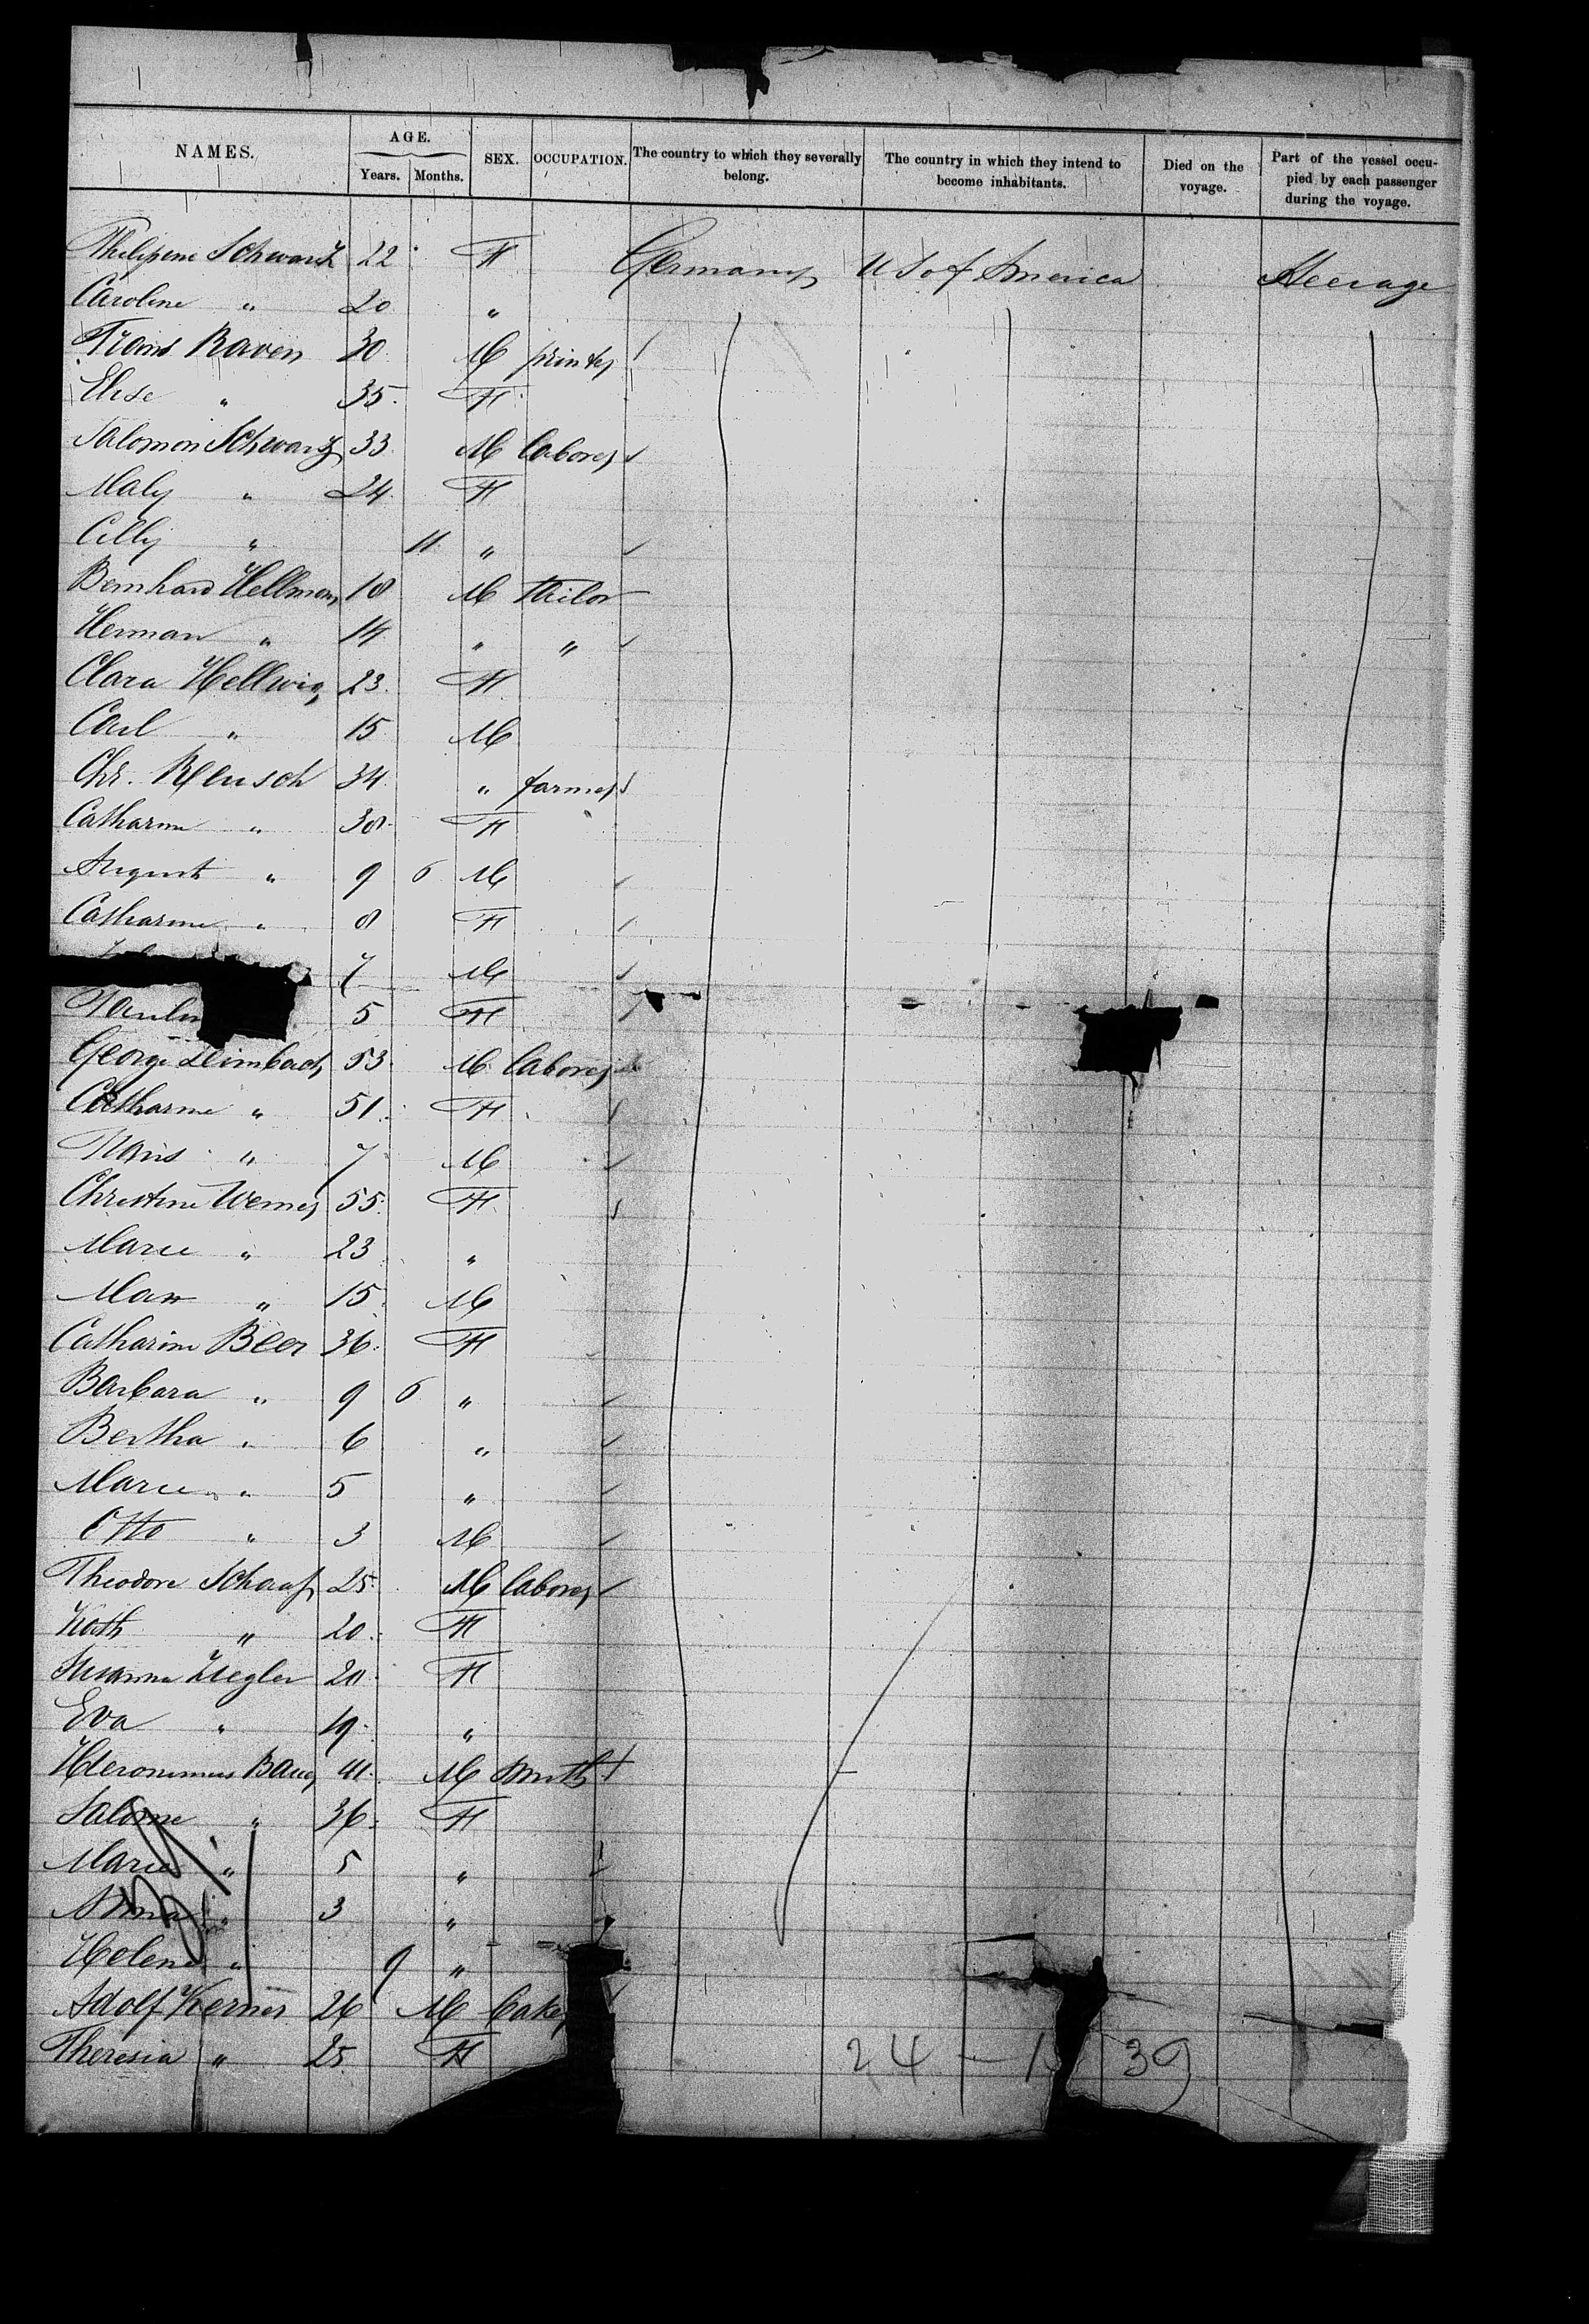 NAMES. AGE. SEX. OCCUPATION. The country to which they severally belong. The country in which they intend to become inhabitants. Died on the voyage. Part of the vessel occupied by each passenger during the voyage.
Years. Months.
Philipine Schwartz 22 F Germany U S of America Steerage
Caroline " 20 "
Frans Raven 30 M printer
Elise " 35 F
Salomon Schwarz 33 M laborer
Maly " 24 F
Cilly " 11 "
Bernhard Hellman 18 M tailor
Herman " 14 " "
Clara Hellwig 23 F
Carl " 15 M
Chr. Reusch 34 " farmer
Catharine " 38 F
August " 9 6 M
Catharine " 8 F
7 M
5 F
George Leimbach 53 M laborer
Catharine " 51 F
Frans " 7 M
Christine Werner 55 F
Marie " 23 "
Max " 15 M
Catharine Beer 36 F
Barbara " 9 6 "
Bertha " 6 "
Marie " 5 "
Otto " 3 M
Theodore Schaaf 25 M laborer
Kath " 20 F
Susanna Ziegler 20 F
Eva " 19 "
Hieronimus Bauer 41 M smith
Salome " 36 F
Marie " 5 "
Anna " 3 "
Helene " 9 "
Adolf Kerner 26 M baker
Theresia " 25 F
24 — 1 39